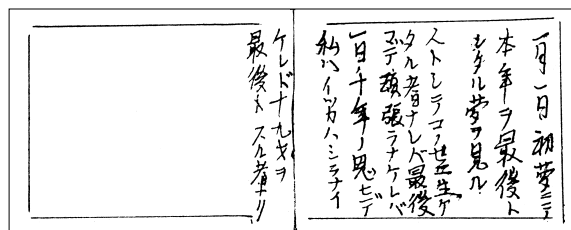 一月一日初夢ニテ
本年ヲ最後ト
シタル夢ヲ見ル
人トシテコノ世ニ生ゲ
タル者ナレバ最後
マデ頑張ラナケレバ
一日千年ノ思ヒデ
私ハイツカハシラナイ
ケレド十九才ヲ
最後トスル者ナリ